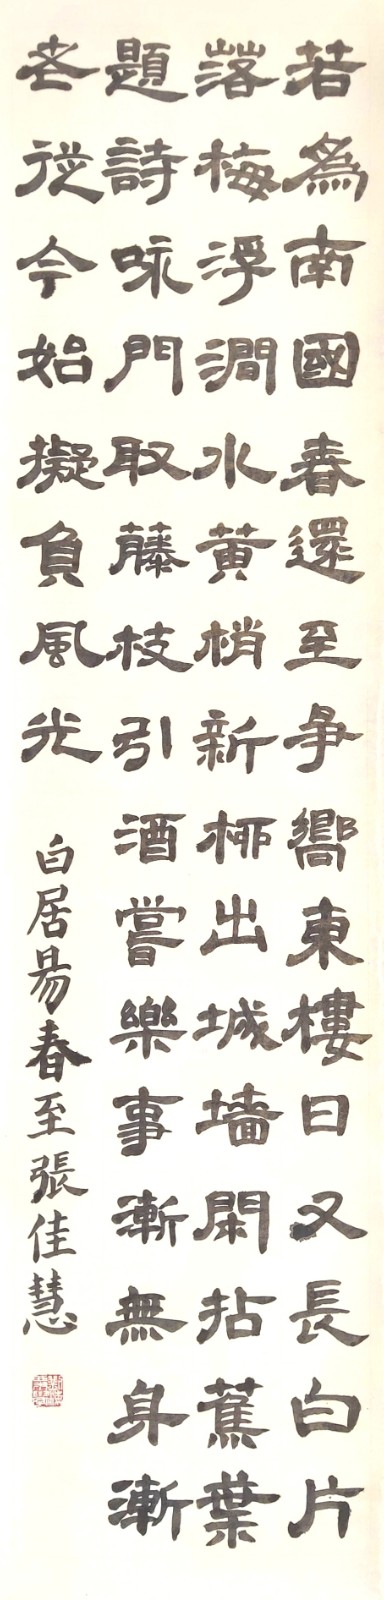 若為南國春還至爭嚮東樓日又長白片
落梅浮澗水黄梢新柳出城墙閑拈蕉葉
題詩咏門取藤枝引酒嘗樂事漸無身漸
老從今始擬負風光
白居易春至張佳慧